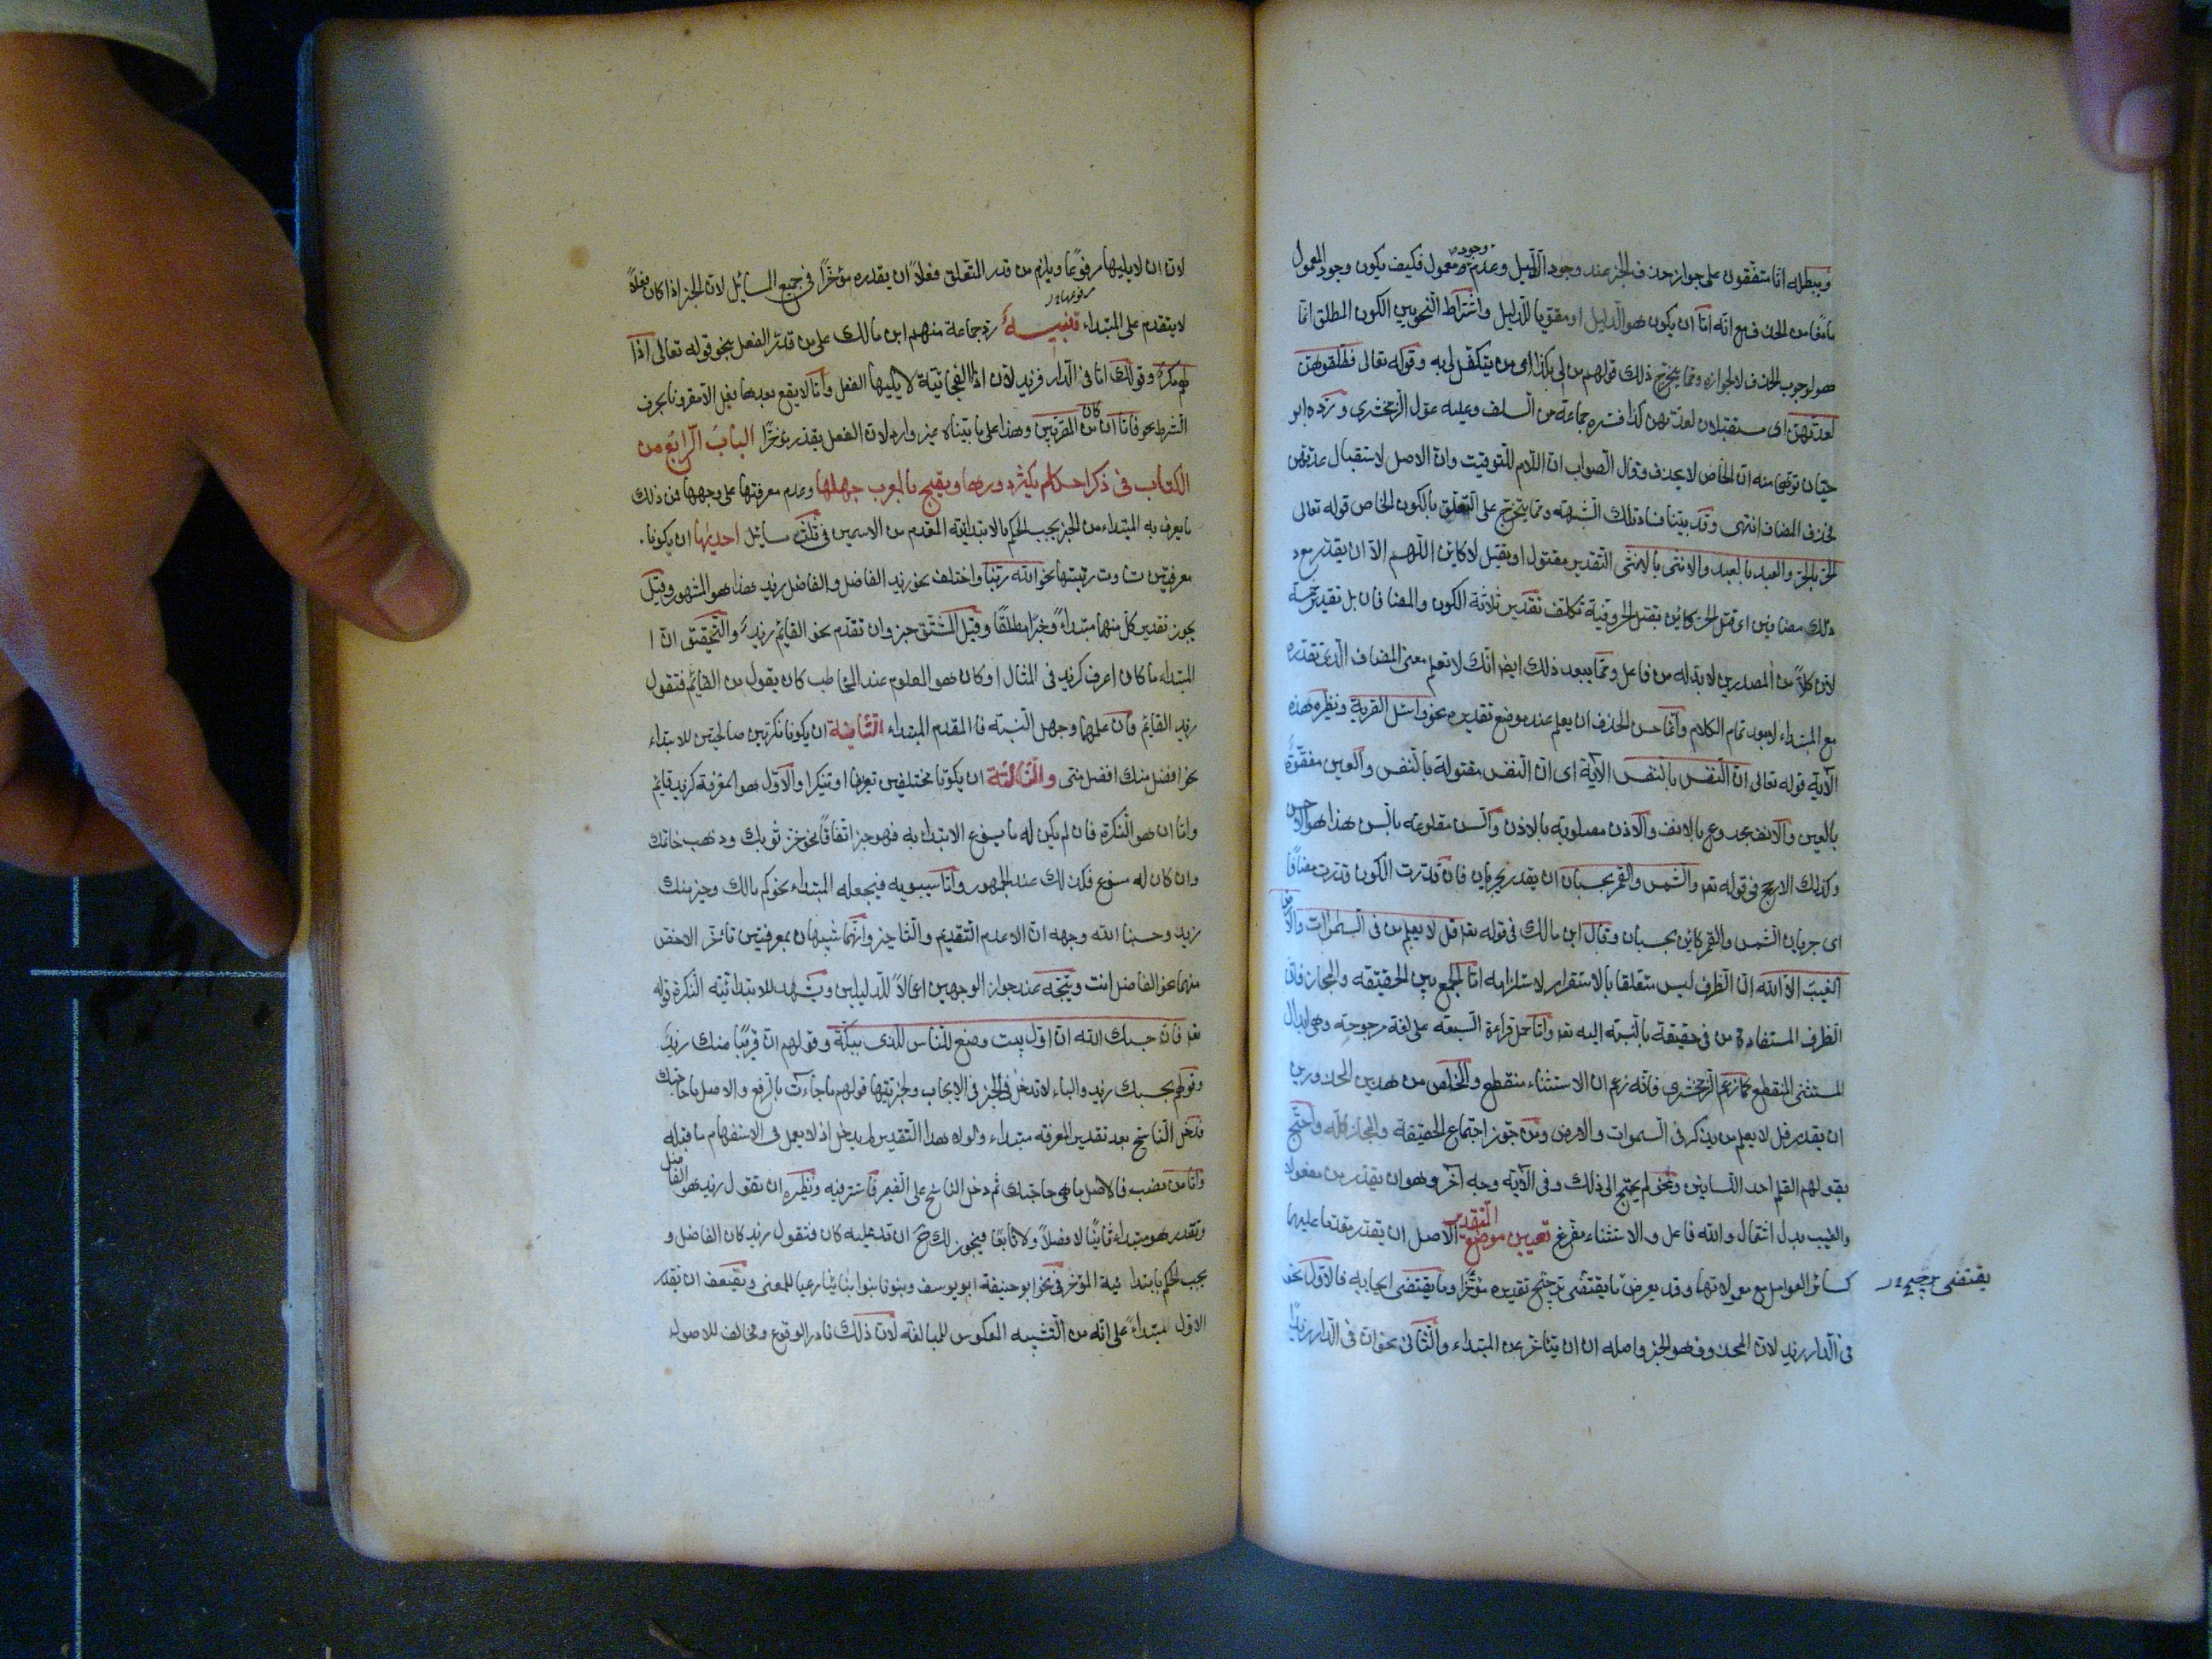 ويبطله انا متفقون على جواز حذف الخبز عند وجود الدليل وعدم وجود معمول فكيف يكون وجود المعمول
مانعا من الحذف مع انه اما ان يكون هو الدليل او مقويا للدليل واشتراط النحويين الكون المطلق انما
هو لوجوب الحذف لا لجوازه ومما يتخرج على ذلك قولهم من لي بكذا اي من يتكفل لي به وقوله تعالى فطلقوهن
لعدتهن اي مستقبلات لعدتهن كذا فسره جماعة من السلف وعليه عول الزمخشري ورده ابو
حيان توهما منه ان الخاص لا يحذف وقال الصواب ان اللام للتوقيت وان الاصل لاستقبال عدتهن
فحذف المضاف انتهى وقد بينا فساد تلك الشبهة ومما يتخرج على التعلق بالكون الخاص قوله تعالى
الحر بالحر والعبد بالعبد والانثى بالانثى التقدير مقتول او يقتل لا كائن اللهم الا ان يقدر مع
ذلك مضافين اي قتل الحر كائن بقتل الحر وفيه تكلف تقدير ثلاثة الكون والمضافان بل تقدير خمسة
لان كلا من المصدرين لا بد له من فاعل ومما يبعد ذلك ايضا انك لا تعلم معنى المضاف الذي تقدره
مع المبتداء الا بعد تمام الكلام وانما حسن الحذف ان يعلم عند موضع تقديره نحو واسئل القرية ونظيره هذه
الآية قوله تعالى ان النفس بالنفس الآية اى ان النفس مقتولة بالنفس والعين مفقوة
بالعين والانف مجدوع بالانف والاذن مصلوبة بالاذن والسن مقلوعة بالسن هذا هو الاحسن
وكذلك الارجح في قوله تعم والشمس والقمر بحسبان ان يقدر يجريان فان قدرت الكون قدرت مضافا
اى جريان الشمس والقمر كائن بحسبان وقال ابن مالك فى قوله تعم قل لا يعلم من فى السموات والارض
الغيب الا الله ان الظرف ليس متعلقا بالاستقرار لاستلزامه اما الجمع بين الحقيقة والمجاز فان
الظرف المستفادة من فى حقيقة بالنسبة اليه تعم واما حمل قراءة السبعة على لغة مرجوحة وهى ابدال
المستثنى المنقطع كما زعم الزمخشرى فانه زعم ان الاستثناء منقطع والمخلص من هذين المحذورين
ان يقدر قل لا يعلم من يذكر فى السموات والارض ومن جوز اجتماع الحقيقة والمجاز كله واحتج
بقولهم القلم احد اللسانين ونحو لم يحتج الى ذلك وفى الآية وجه آخر وهو ان يقدر من مفعولا
والغيب بدل اشتمال والله فاعل والاستثناء مفرغ تعيين موضع التقدير الاصل ان يقدر مقدما عليها
كسائر العوامل مع معمولاتها وقد يعرض ما يقتضى ترجيح تقديره مؤخرا وما يقتضى ايجابه فالاول نحو
يقتضى ترجيحه
فى الدار زيد لان المحذوف هو الخبر واصله ان يتاخر عن المبتداء والثانى نحو ان فى الدار زيدا
لان ان لا يليها مرفوعها ويلزم من قدر المتعلق فعلا ان يقدره مؤخرا فى جميع المسائل لان الخبر اذا كان فعلا
مرفوعها
لا يتقدم على المبتداء تنبيه رد جماعة منهم ابن مالك على من قدر الفعل بنحو قوله تعالى اذا
لهم مكر وقولك اما فى الدار فزيد لان اذا الفجائية لا يليها الفعل واما لا يقع بعدها فعل الا مقرونا بحرف
الشرط نحو فاما ان كان من المقربين وهذا على ما بيناه غير وارد لان الفعل يقدر مؤخرا الباب الرابع من
الكتاب فى ذكر احكام يكثر دورها ويقبح بالمعرب جهلها وعدم معرفتها على وجهها فمن ذلك
ما يعرف به المبتداء من الخبر يجب الحكم بالابتدائية المقدم من الاسمين فى ثلث مسائل احديها ان يكونا
معرفتين تساوت رتبتهما نحو الله ربنا واختلف نحو زيد الفاضل والفاضل زيد هذا هو المشهور وقيل
يجوز تقدير كل منهما مبتداء وخبرا مطلقا وقيل المشتق خبر وان تقدم نحو القائم زيد والتحقيق ان ا
المبتداء ما كان اعرف كزيد فى المثال او كان هو المعلوم عند المخاطب كان يقول من القائم فتقول
زيد القائم فان علمهما وجهل النسبة فالمقدم المبتداء الثانية ان يكونا نكرتين صالحتين للابتداء
نحو افضل منك افضل منى والثالثة ان يكونا مختلفين تعريفا وتنكيرا والاول هو المعرفة كزيد قائم
واما ان هو النكرة فان لم يكن له ما يسوغ الابتداء به فهو خبر اتفاقا نحو خز ثوبك وذهب خاتمك
وان كان له مسوغ فكذلك عند الجمهور واما سيبويه فيجعله المبتداء نحو كم مالك وخير منك
زيد وحسبنا الله وجهه ان الا عدم التقديم والتاخير وانهما شبيهان بمعرفتين تاخر الاخص
منهما نحو الفاضل انت ويتجه عند جواز الوجهين اعمالا للدليلين ويشهد للابتدائية النكرة قوله
تعم فان حسبك الله ان اول بيت وضع للناس للذى ببكة وقولهم ان قريبا منك زيد
وقولهم بحسبك زيد والباء لا تدخل فى الخبر فى الايجاب ولخبريتها قولهم ما جاءت بالرفع والاصل ما حاجتك
فدخل الناسخ بعد تقدير المعرفة مبتداء ولولا هذا التقدير لم يدخل اذ لا يعمل فى الاستفهام ما قبله
واما من نصب فالاصل ما هى حاجتك ثم دخل الناسخ على الضمير فاستتر فيه ونظيره ان تقول زيد هو الفاضل
وتقدر هو مبتداء ثانيا لا فصلا ولا تابعا فيجوز لك ح ان تدخل عليه كان فتقول زيد كان الفاضل و
يجب الحكم بابتدائية المؤخر فى نحو ابو حنيفة ابو يوسف وبنونا بنو ابنائنا رعيا للمعنى ويضعف ان تقدر
الاول مبتداء على انه من التشبيه المعكوس للمبالغة لان ذلك نادر الوقوع ومخالف للاصول